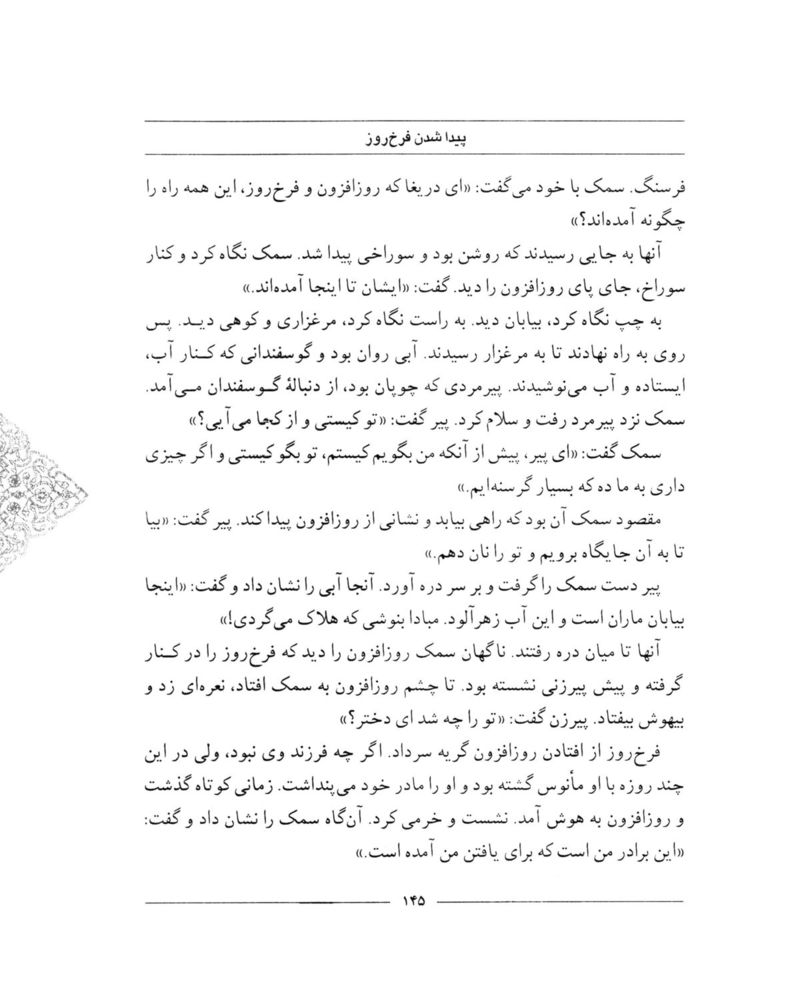 پیدا شدن فرخ‌روز
فرسنگ. سمک با خود می‌گفت: «ای دریغا که روزافزون و فرخ‌روز، این همه راه را
چگونه آمده‌اند؟»
آنها به جایی رسیدند که روشن بود و سوراخی پیدا شد. سمک نگاه کرد و کنار
سوراخ، جای پای روزافزون را دید. گفت: «ایشان تا اینجا آمده‌اند.»
به چپ نگاه کرد، بیابان دید. به راست نگاه کرد، مرغزاری و کوهی دیـد. پس
روی به راه نهادند تا به مرغزار رسیدند. آبی روان بود و گوسفندانی که کـنار آب،
ایستاده و آب می‌نوشیدند. پیرمردی که چوپان بود، از دنبالهٔ گـوسفندان مـی‌آمد.
سمک نزد پیرمرد رفت و سلام کرد. پیر گفت: «تو کیستی و از کجا می‌آیی؟»
سمک گفت: «ای پیر، پیش از آنکه من بگویم کیستم، تو بگو کیستی و اگر چیزی
داری به ما ده که بسیار گرسنه‌ایم.»
مقصود سمک آن بود که راهی بیابد و نشانی از روزافزون پیدا کند. پیر گفت: «بیا
تا به آن جایگاه برویم و تو را نان دهم.»
پیر دست سمک را گرفت و بر سر دره آورد. آنجا آبی را نشان داد و گفت: «اینجا
بیابان ماران است و این آب زهرآلود. مبادا بنوشی که هلاک می‌گردی!»
آنها تا میان دره رفتند. ناگهان سمک روزافزون را دید که فرخ‌روز را در کـنار
گرفته و پیش پیرزنی نشسته بود. تا چشم روزافزون به سمک افتاد، نعره‌ای زد و
بیهوش بیفتاد. پیرزن گفت: «تو را چه شد ای دختر؟»
فرخ‌روز از افتادن روزافزون گریه سرداد. اگر چه فرزند وی نبود، ولی در این
چند روزه با او مأنوس گشته بود و او را مادر خود می‌پنداشت. زمانی کوتاه گذشت
و روزافزون به هوش آمد. نشست و خرمی کرد. آن‌گاه سمک را نشان داد و گفت:
«این برادر من است که برای یافتن من آمده است.»
۱۴۵